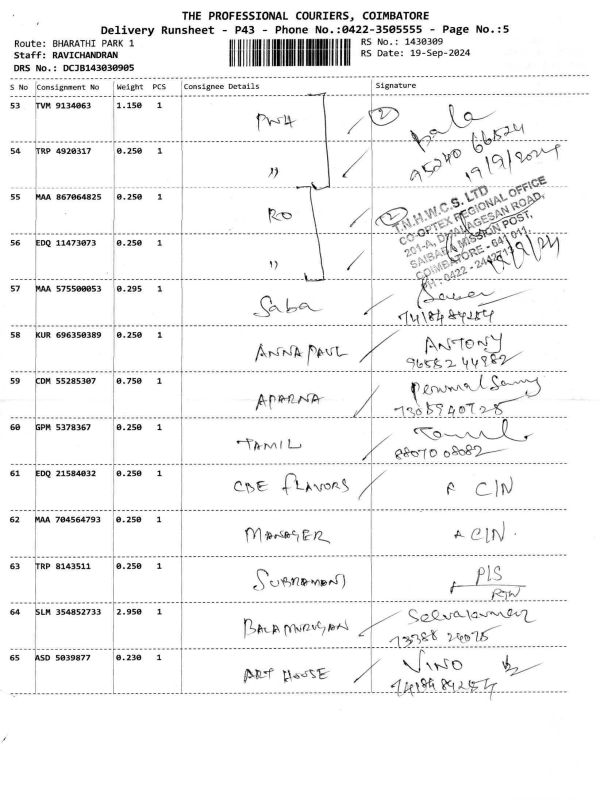 THE PROFESSIONAL COURIERS, COIMBATORE
Delivery Runsheet - P43 - Phone No.:0422-3505555 - Page No.:5
Route: BHARATHI PARK 1 RS No.: 1430309
Staff: RAVICHANDRAN RS Date: 19-Sep-2024
DRS No.: DCJB143030905
S No Consignment No Weight PCS Consignee Details Signature
53 TVM 9134063 1.150 1 PWH 2 Bala
95240 66524
54 TRP 4920317 0.250 1 " 19/9/2024
55 MAA 867064825 0.250 1 RO 2 T.N.H.W.C.S. LTD
CO-OPTEX REGIONAL OFFICE
201-A, ROAD,
SAIBABA MISSION POST,
56 EDQ 11473073 0.250 1 " COIMBATORE - 641 011.
PH : 0422 -
57 MAA 575500053 0.295 1 Saba
7418484284
58 KUR 696350389 0.250 1 ANNA PAUL ANTONY
96582 44982
59 CDM 55285307 0.750 1 APARNA Perumal Samy
7305940725
60 GPM 5378367 0.250 1 TAMIL Tamil
88070 08082
61 EDQ 21584032 0.250 1 CBE FLAVORS C/N
62 MAA 704564793 0.250 1 MANAGER C/N
63 TRP 8143511 0.250 1 SUBRAMANI P/S
64 SLM 354852733 2.950 1 BALAMURUGAN Selvakumar
73388 24075
65 ASD 5039877 0.230 1 ART HOUSE VINO
7418484284